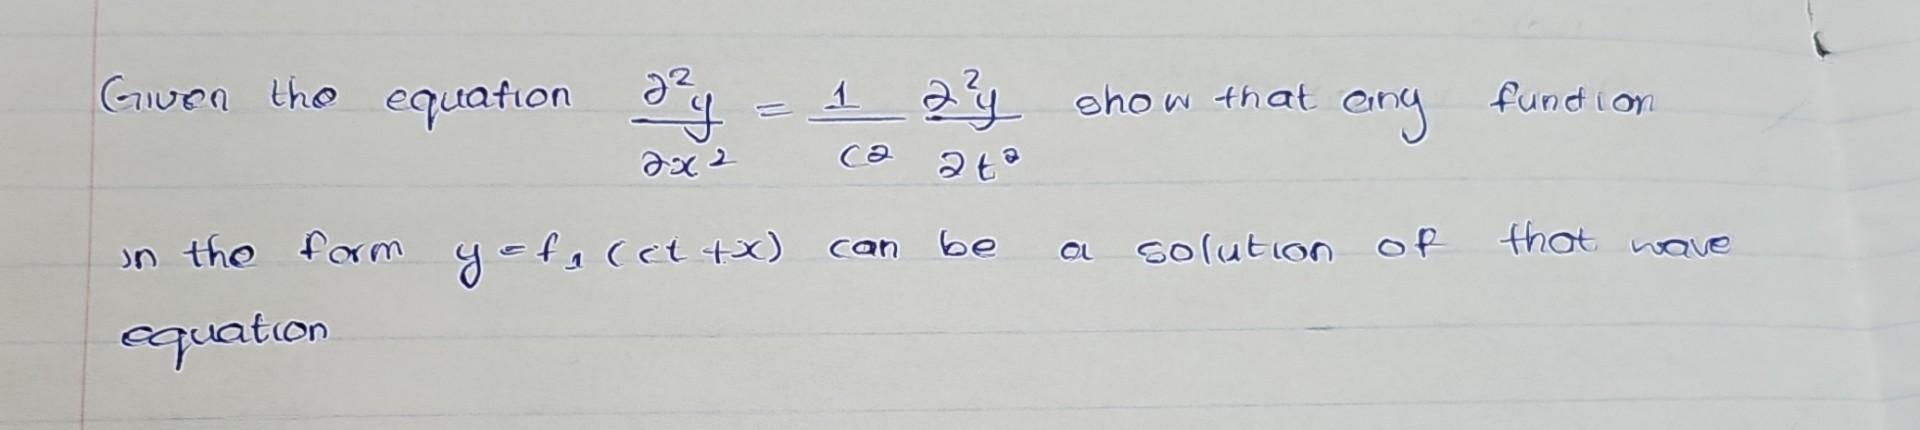 Given the equation ∂²y/∂x² = 1/c² ∂²y/∂t² show that any function
in the form y = f₁ (ct + x) can be a solution of that wave
equation